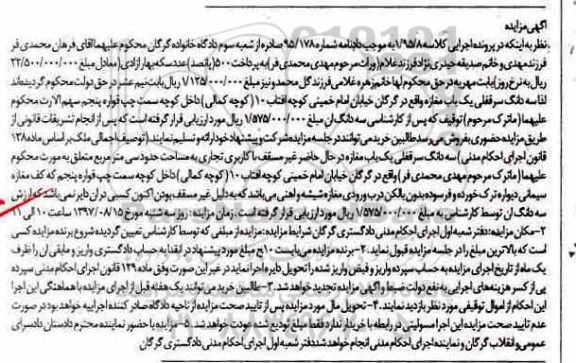 آگهی مزایده
نظر به اینکه در پرونده اجرایی کلاسه ۱/۹۵/۸ به موجب دادنامه شماره ۹۵/۱۷۸ صادره از شعبه سوم دادگاه خانواده گرگان محکوم علیهما اقای فرهان محمدی فر
فرزند مهدی و خانم صدیقه حیدری نژاد فرزند غلام (وراث مرحوم مهدی محمدی فر) به پرداخت ۵۰۰ (پانصد) عدد سکه بهار ازادی (معادل مبلغ ۲۲/۵۰۰/۰۰۰/۰۰۰
ریال به نرخ روز) بابت مهریه در حق محکوم لها خانم زهره غلامی فرزند گل محمد و نیز مبلغ ۱/۱۲۵/۰۰۰/۰۰۰ ریال بابت نیم عشر در حق دولت محکوم گردیده اند
لذا سه دانگ سرقفلی یک باب مغازه واقع در گرگان خیابان امام خمینی کوچه افتاب ۱۰ (کوچه کمالی) داخل کوچه سمت چپ قواره پنجم سهم الارث محکوم
علیهما (ماترک مرحوم) توقیف که پس از کارشناسی سه دانگ ان مبلغ ۱/۵۷۵/۰۰۰/۰۰۰ ریال مورد ارزیابی قرار گرفته است که پس از انجام تشریفات قانونی از
طریق مزایده حضوری بفروش می رسد طالبین خرید می توانند در جلسه مزایده شرکت و پیشنهاد خود را ارائه و تسلیم نمایند (توصیف اجمالی ملک بر اساس ماده ۱۳۸
قانون اجرای احکام مدنی) سه دانگ سرقفلی یک باب مغازه در حال حاضر غیر مسقف با کاربری تجاری به مساحت حدود سی متر مربع متعلق به مورث محکوم
علیهما (ماترک مرحوم مهدی محمدی فر) واقع در گرگان خیابان امام خمینی کوچه افتاب ۱۰ (کوچه کمالی) داخل کوچه سمت چپ قواره پنجم که کف مغازه
سیمانی دیواره ترک خورده و فرسوده بدون بالکن درب ورودی مغازه شیشه و اهنی می باشد که به دلیل غیر مسقف بودن اکنون کسبی در ان دایر نمی باشد که ارزش
سه دانگ ان توسط کارشناسی به مبلغ ۱/۵۷۵/۰۰۰/۰۰۰ ریال مورد ارزیابی قرار گرفته است. زمان مزایده: روز سه شنبه مورخ ۱۳۹۷/۰۸/۱۵ ساعت ۱۰ الی ۱۱
۲-مکان مزایده: دفتر شعبه اول اجرای احکام مدنی دادگستری گرگان شرایط مزایده: مزایده از مبلغی که توسط کارشناس تعیین گردیده شروع برنده مزایده کسی
است که بالاترین مبلغ را در جلسه مزایده قبول نماید. ۲- برنده مزایده می بایست ۱۰٪ مبلغ مورد پیشنهاد در انقد به حساب دادگستری واریز و مابقی ان را ظرف
یک ماه از تاریخ اجرای مزایده به حساب سپرده واریز و قبض واریز شده را تحویل دایره اجرا نماید در غیر این صورت وفق ماده ۱۲۹ قانون اجرای احکام مدنی سپرده
پی از کسر هزینه های اجرایی به نفع دولت ضبط و آگهی مزایده تجدید خواهد شد. ۳- طالبین خرید می توانند یک هفته قبل از اجرای مزایده با هماهنگی این اجرا
این احکام از اموال توقیفی مورد نظر بازدید نمایند. ۴- تحویل مال مورد مزایده پس از تایید صحت مزایده از ناحیه دادگاه صادر کننده اجراییه خواهد بود در صورت
عدم تایید صحت مزایده این اجرا مسولیتی در رابطه با خریدار ندارد فقط مبلغ تودیع شده عودت خواهد شد. ۵- مزایده با حضور نماینده محترم دادستان دادسرای
عمومی و انقلاب گرگان و نماینده اجرای احکام مدنی انجام خواهد شد دفتر شعبه اول اجرای احکام مدنی دادگستری گرگان